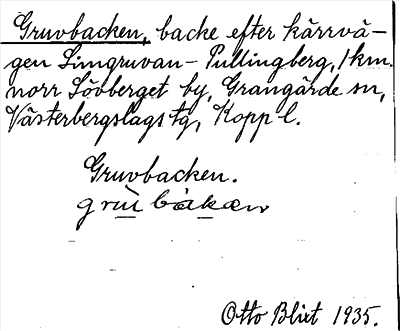 Gruvbacken, backe efter kärrvä-
gen Limgruvan - Pullingberg, 1 km.
norr Lövberget by, Grangärde sn,
Västerbergslags tg, Kopp l.
Gruvbacken.
grù bàkæn
Otto Blixt 1935.